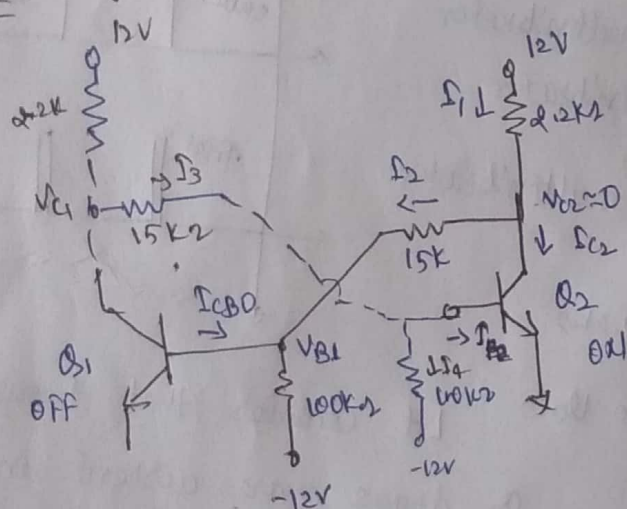 12V
2.2K
VC1
→ I3
15KΩ
ICBO
→
Q1
OFF
VB1
100KΩ
-12V
12V
I1 ↓
2.2KΩ
I2
←
15K
VC2≃0
↓ IC2
Q2
ON
→ IB2
↓I4
100KΩ
-12V